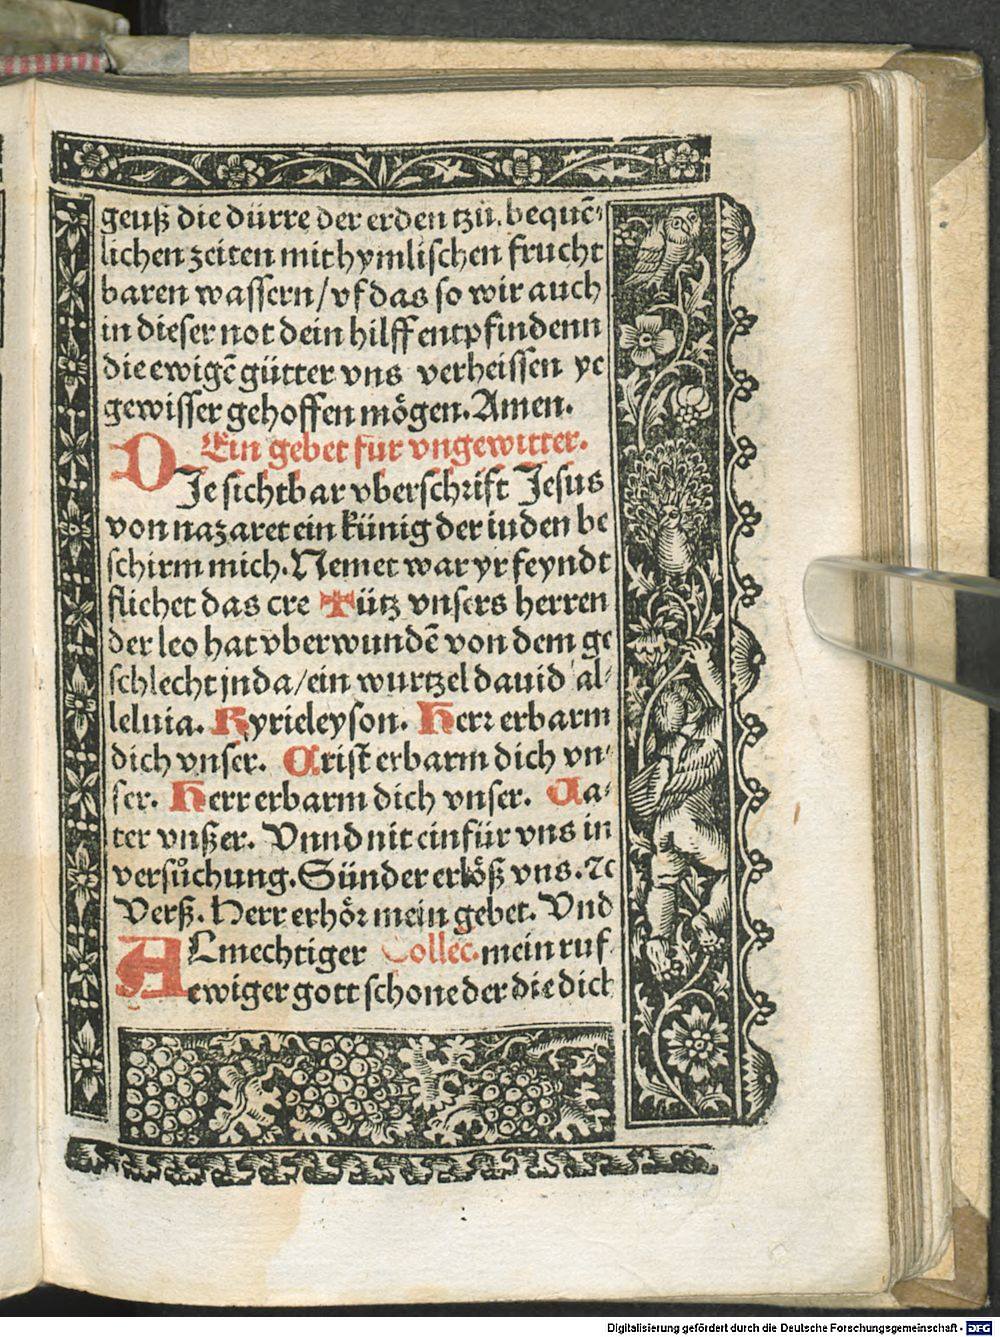 geuß die dürre der erden tzů. bequē⸗
lichen zeiten mit hymlischen frucht
baren wassern/ vf das so wir auch
in dieser not dein hilff entpfindenn
die ewigē gütter vns verheissen ye
gewisser gehoffen mögen. Amen.
Ein gebet für vngewitter.
DIe sichtbar vberschrift Jesus
von nazaret ein künig der iuden be
schirm mich. Nemet war yr feyndt
fliehet das cre ✠ ütz vnsers herren
der leo hat vberwundē von dem ge
schlecht jnda/ ein wurtzel dauid al⸗
leluia. Kyrieleyson. Herr erbarm
dich vnser. Crist erbarm dich vn⸗
ser. Herr erbarm dich vnser. Va⸗
ter vnßer. Vnnd nit einfür vns in
versůchung. Sünder erlöß vns. ⁊c
Verß. Herr erhör mein gebet. Vnd
ALmechtiger Collec. mein ruf
ewiger gott schone der die dich
Digitalisierung gefördert durch die Deutsche Forschungsgemeinschaft - DFG